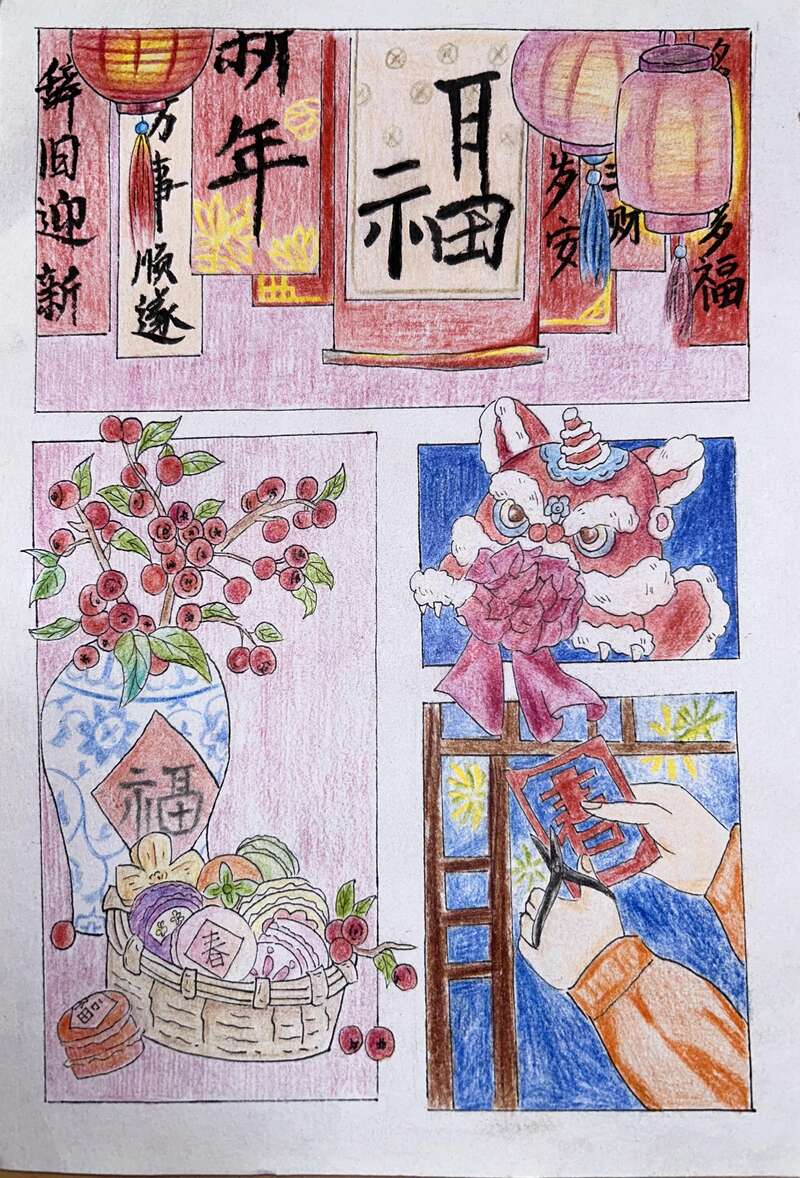 辞旧迎新
万事顺遂
新年
福
岁安
财
多福
福
春
福
春